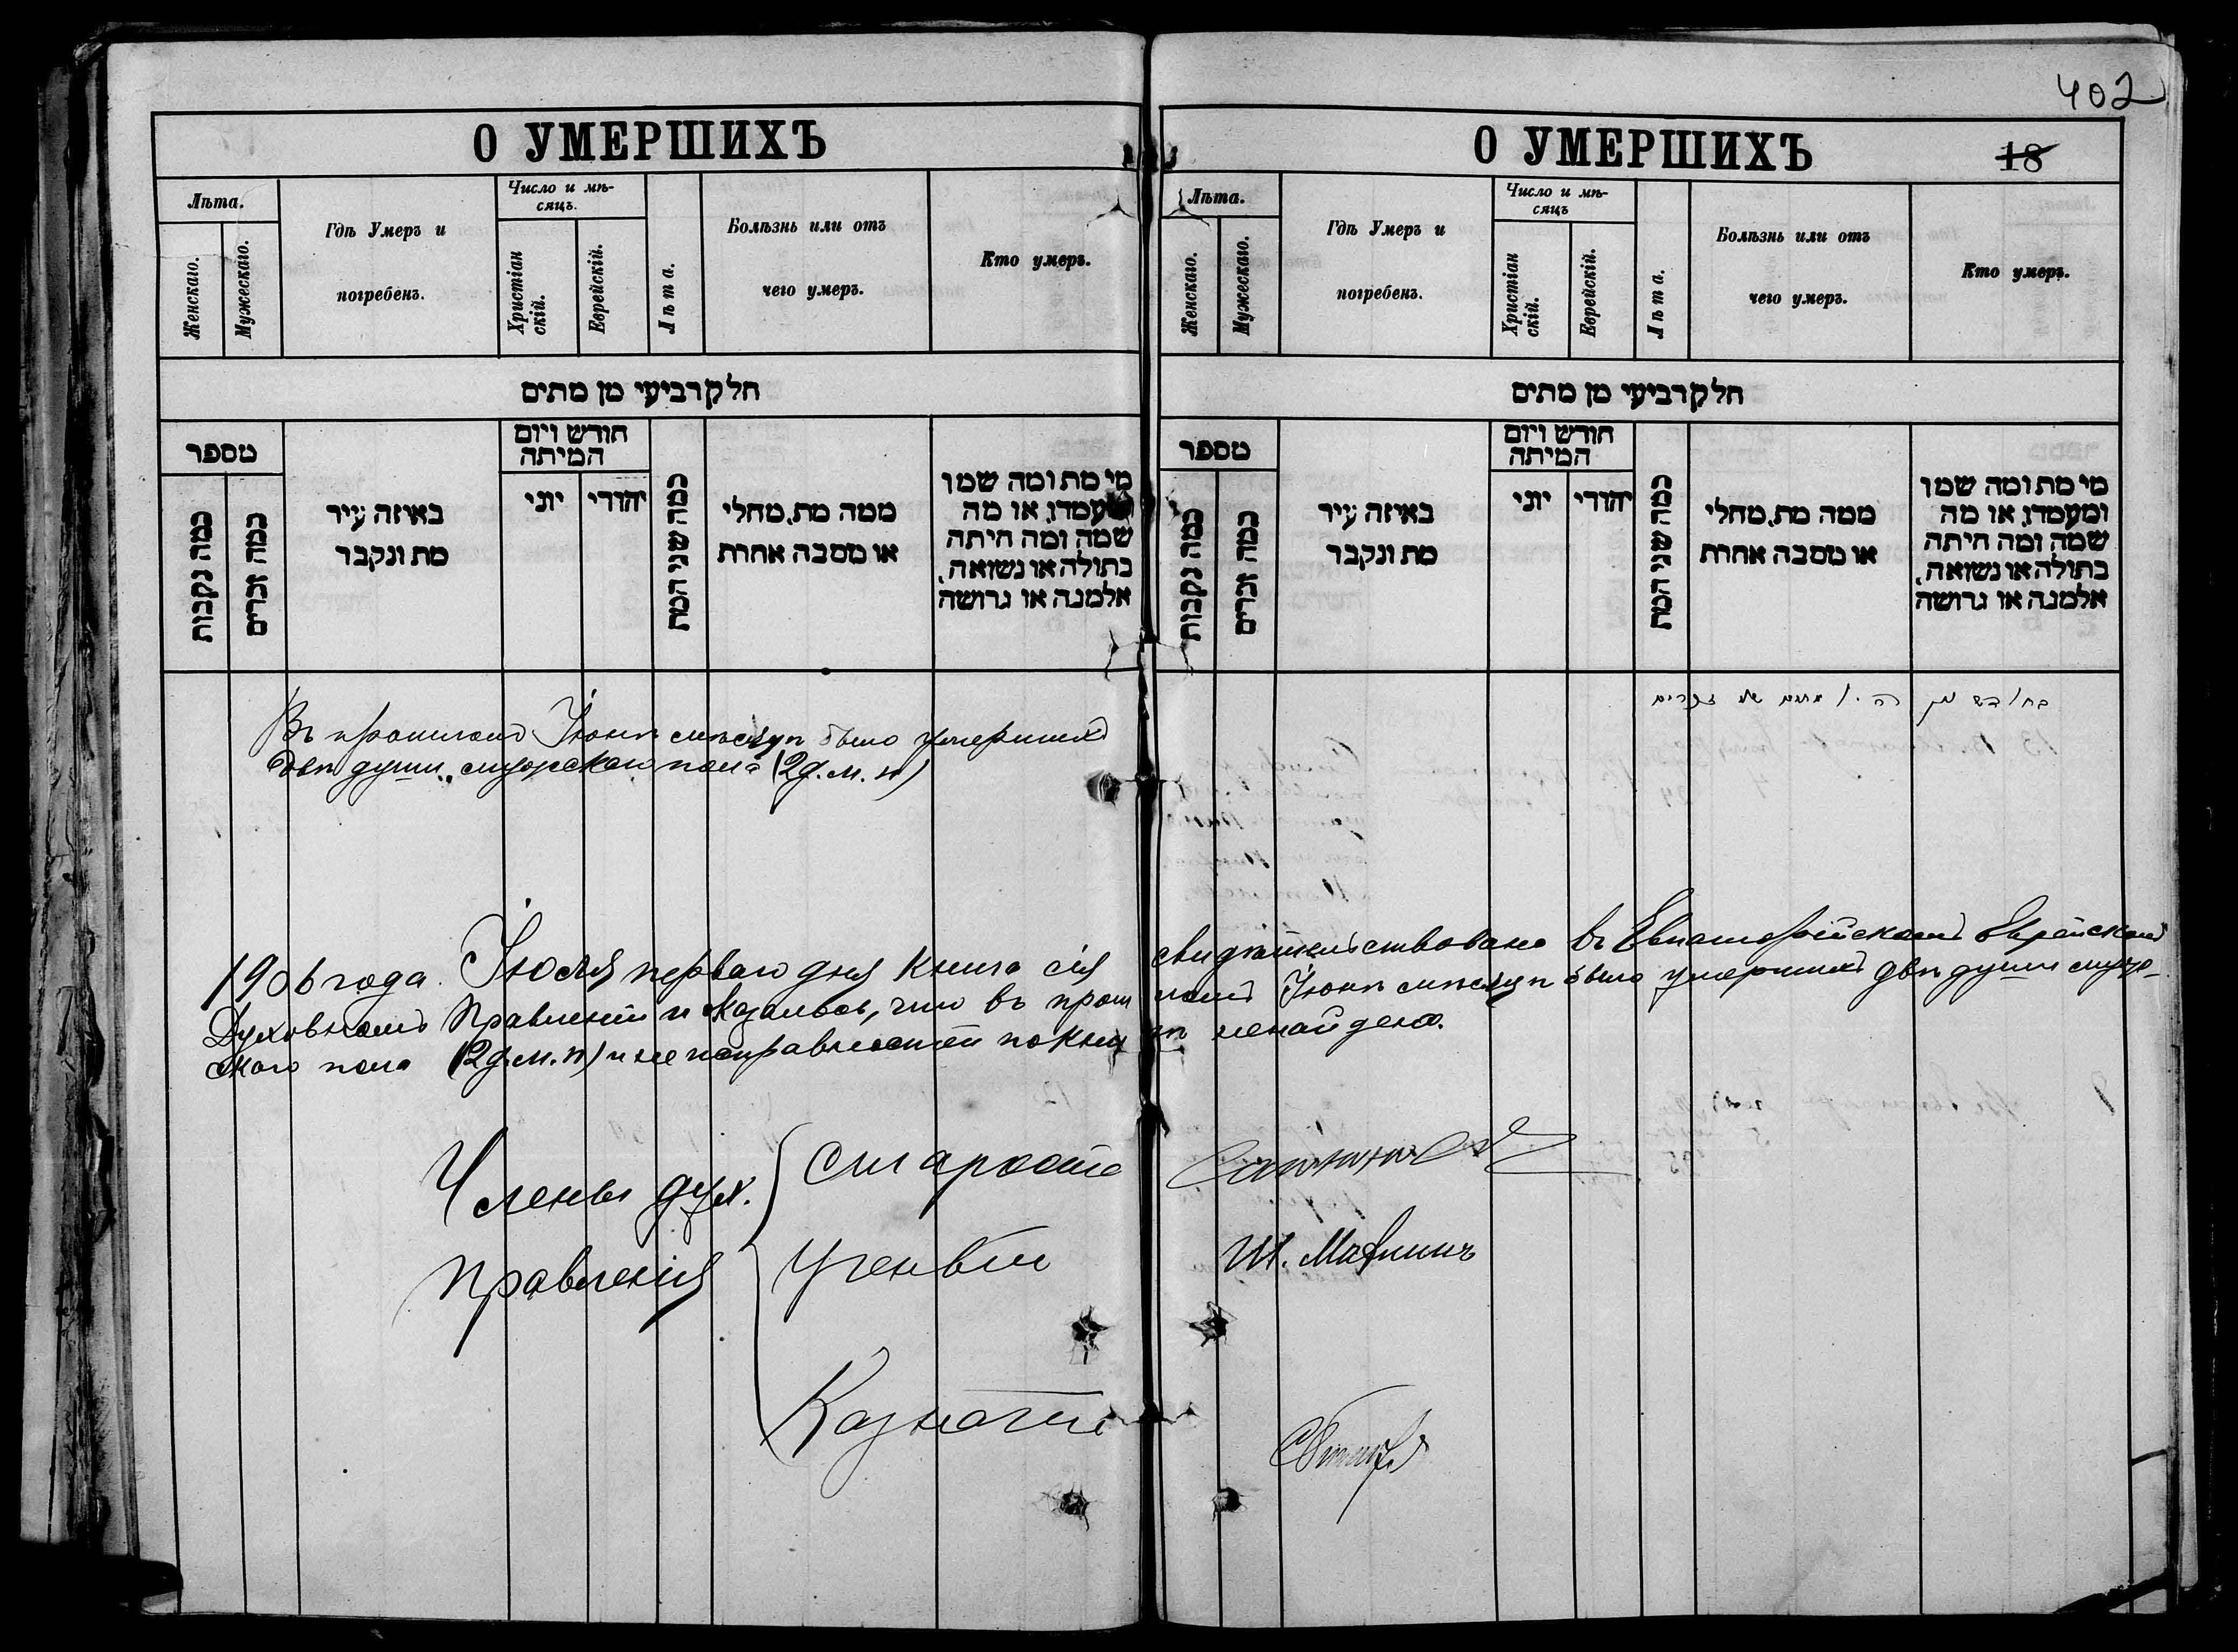 402
О УМЕРШИХЪ
Лѣта.
Женскаго.
Мужескаго.
Гдѣ Умеръ и
погребенъ.
Число и мѣ-
сяцъ.
Христіан
скій.
Еврейскій.
Лѣта.
Болѣзнь или отъ
чего умеръ.
Кто умеръ.
חלק רביעי מן מתים
מספר
כמה נקבות
כמה זכרים
באיזה עיר
מת ונקבר
חודש ויום
המיתה
יוני
יהודי
כמה שני המת
ממה מת, מחלי
או מסבה אחרת
מי מת ומה שמו
ומעמדו, או מה
שמה ומה היתה
בתולה או נשואה,
אלמנה או גרושה
Въ прошломъ Іюнѣ мѣсяцѣ было умершихъ
двѣ души мужскаго пола (2 д. м. п)
О УМЕРШИХЪ
18
Лѣта.
Женскаго.
Мужескаго.
Гдѣ Умеръ и
погребенъ.
Число и мѣ-
сяцъ
Христіан
скій.
Еврейскій.
Лѣта.
Болѣзнь или отъ
чего умеръ.
Кто умеръ.
חלק רביעי מן מתים
מספר
כמה נקבות
כמה זכרים
באיזה עיר
מת ונקבר
חודש ויום
המיתה
יוני
יהודי
כמה שני המת
ממה מת, מחלי
או מסבה אחרת
מי מת ומה שמו
ומעמדו, או מה
שמה ומה היתה
בתולה או נשואה,
אלמנה או גרושה
1906 года Іюля перваго дня книга сія свидѣтельствована въ Евпаторійскомъ Еврейскомъ
Духовномъ Правленіи и оказалось, что въ прошломъ Іюнѣ мѣсяцѣ было умершихъ двѣ души муже-
скаго пола (2 д. м. п) и неисправностей по книгѣ ненайдено.
Члены дух. Староста
Правленія Ученый Ш. Мавнинъ
Казначей